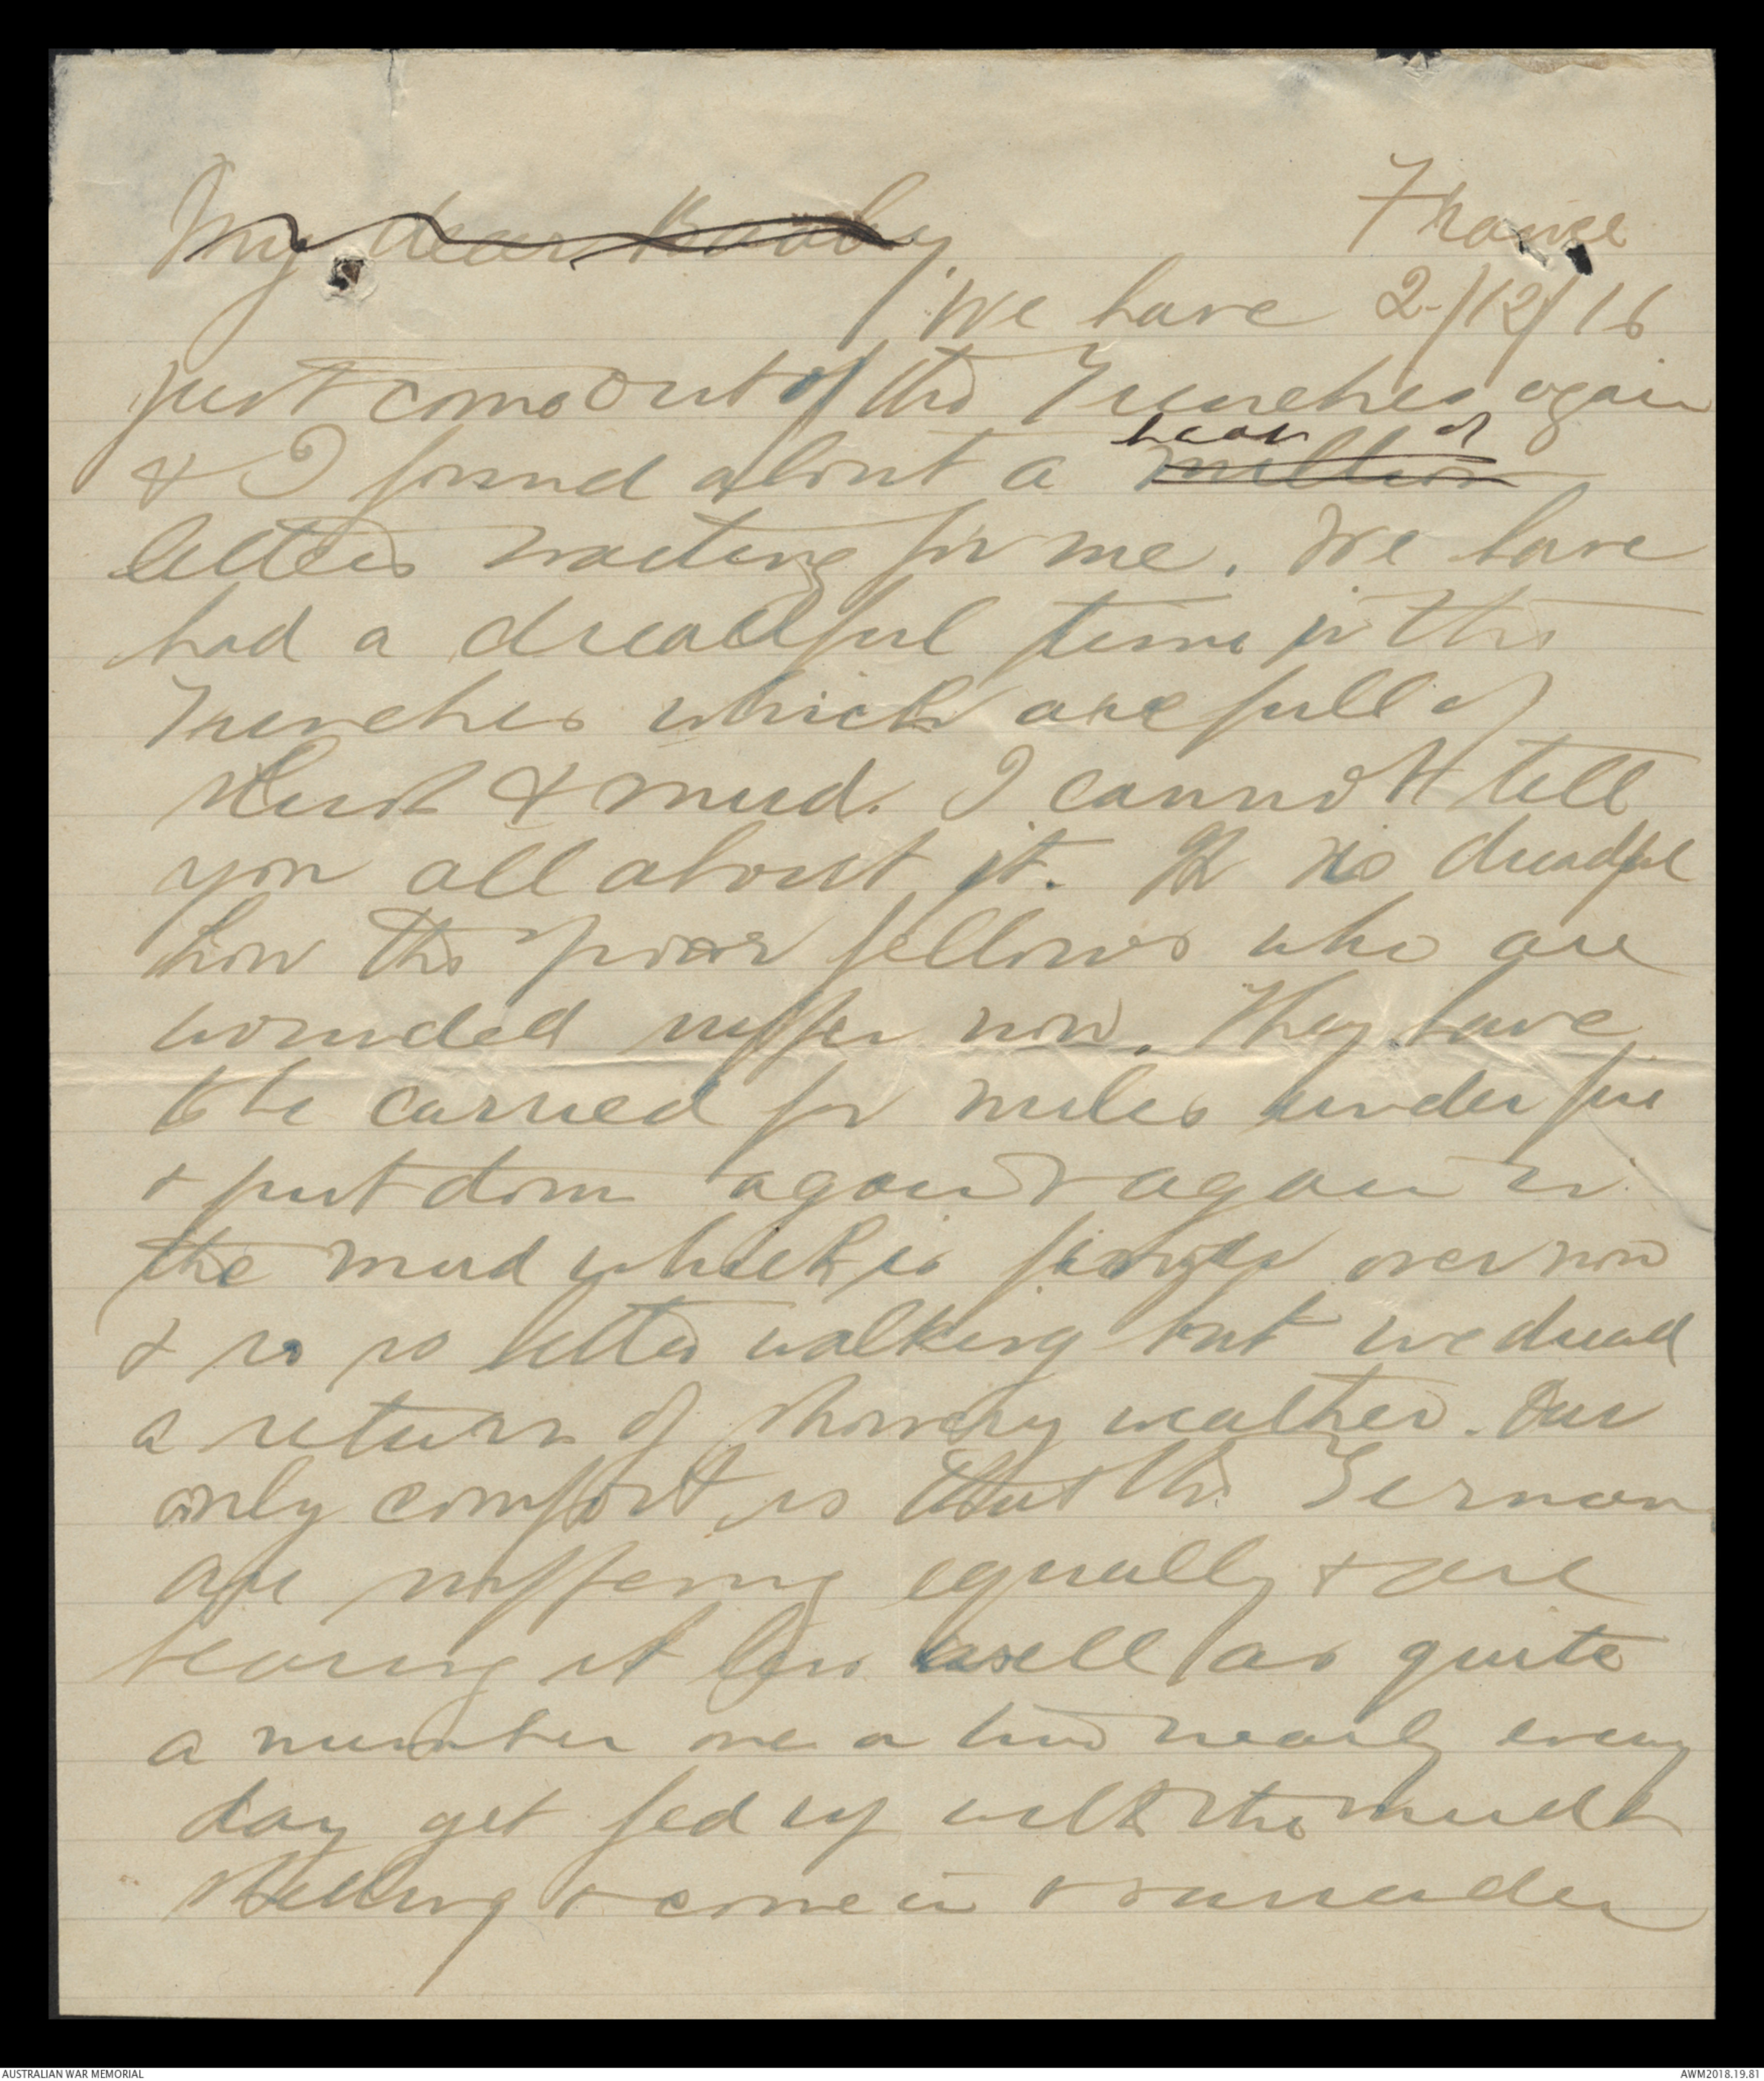 My dear
France
We have 2/12/16
just come out of the Trenches again
& I found about a million heap of
letters waiting for me. We have
had a dreadful time in the
Trenches which are full of
slush & mud. I cannot tell
you all about it. It is dreadful
how the poor fellows who are
wounded suffer now. They have
to be carried for miles under fire
& put down again & again in
the mud which is frozen over now
& is so better walking but we dread
a return of showery weather. Our
only comfort is that the German
are suffering equally & are
bearing it less well as quite
a number one or two nearly every
day get fed up with the mud &
shelling & come in & surrender
AUSTRALIAN WAR MEMORIAL
AWM2018.19.81